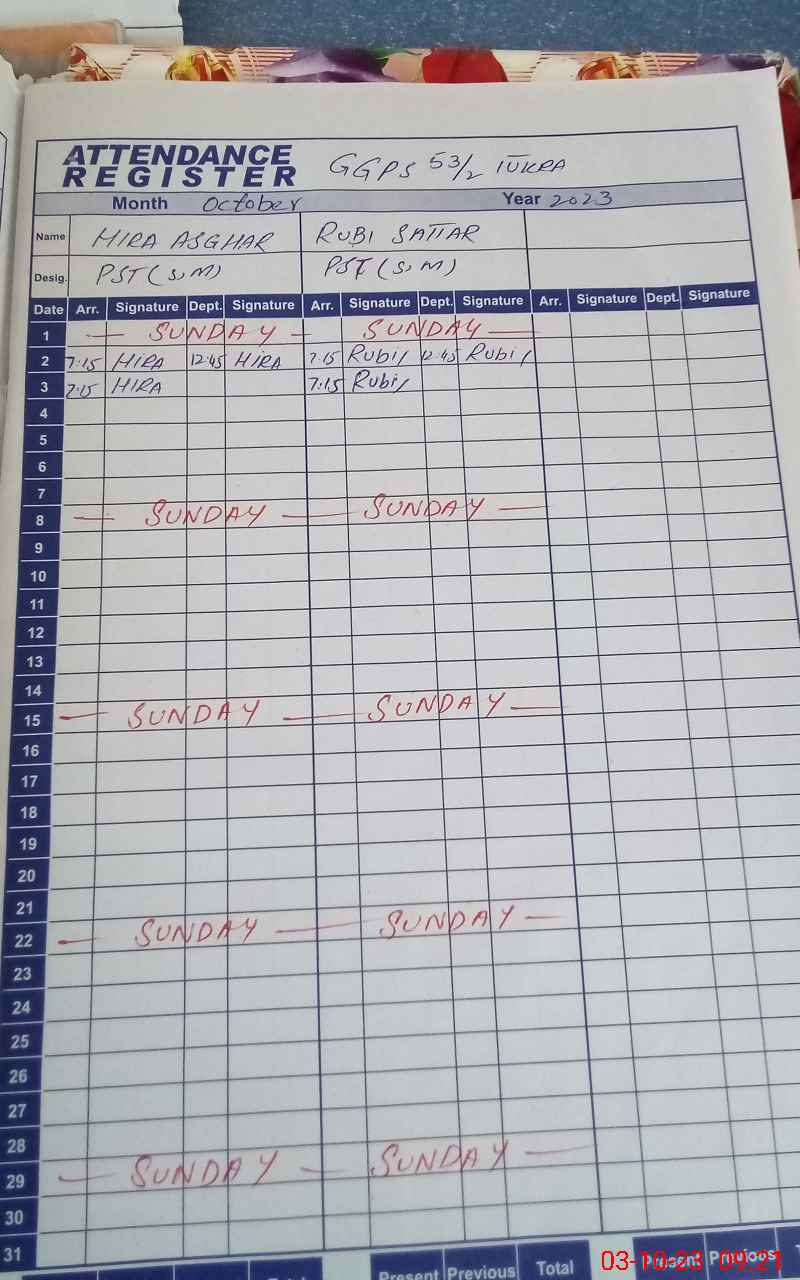 ATTENDANCE
REGISTER
GGPS 53/2
Month October Year 2023
Name HIRA ASGHAR RUBI SATTAR
Desig. PST(S,M) PST(S,M)
Date Arr. Signature Dept. Signature Arr. Signature Dept. Signature Arr. Signature Dept. Signature
1 — SUNDAY — SUNDAY —
2 7:15 HIRA 12:45 HIRA 7:15 Rubi 12:45 Rubi
3 7:15 HIRA 7:15 Rubi
4
5
6
7
8 — SUNDAY — SUNDAY —
9
10
11
12
13
14
15 — SUNDAY — SUNDAY —
16
17
18
19
20
21
22 — SUNDAY — SUNDAY —
23
24
25
26
27
28
29 — SUNDAY — SUNDAY —
30
31
Present Previous Total Present Previous
03-10-23 09:21